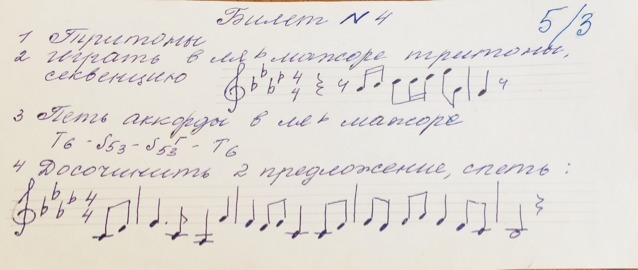 Билет № 4
5/3
1 Тритоны
2 играть в ля ь мажоре тритоны,
секвенцию 4 4
3 Петь аккорды в ля ь мажоре
T6 - S53 - S53г - T6
4 Досочинить 2 предложение, спеть :
4 4